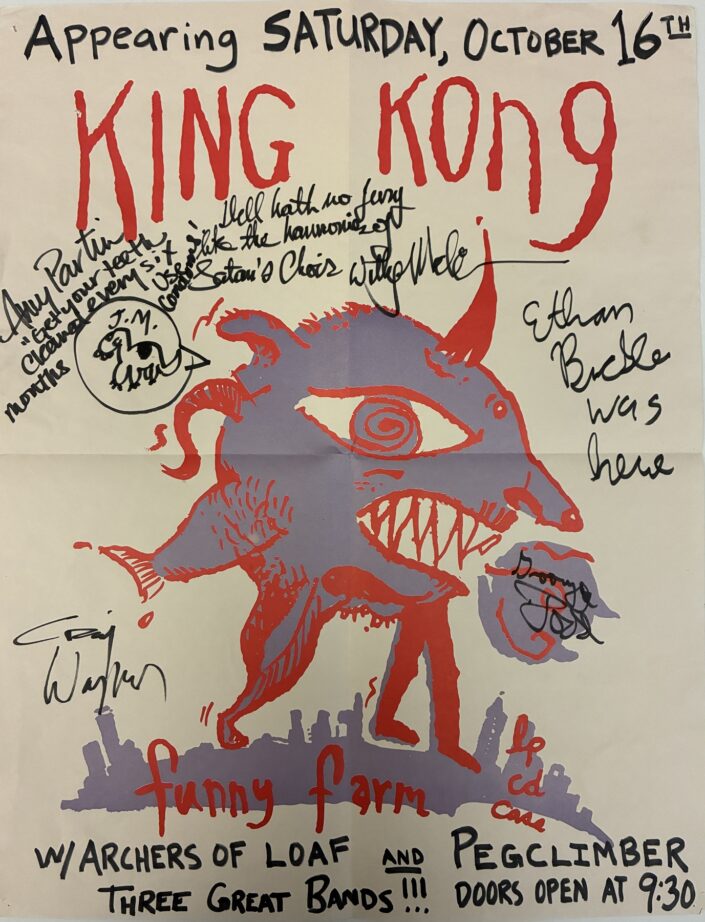 Appearing SATURDAY, OCTOBER 16TH
KING KONG
Amy Partin
"Get your teeth
cleaned every six
months
J.M.
Hell hath no fury
like the harmonies of
Satan's Choir
Ethan
Buckler
was
here
Craig
funny farm
lp
cd
case
W/ ARCHERS OF LOAF AND PEGCLIMBER
THREE GREAT BANDS!!! DOORS OPEN AT 9:30